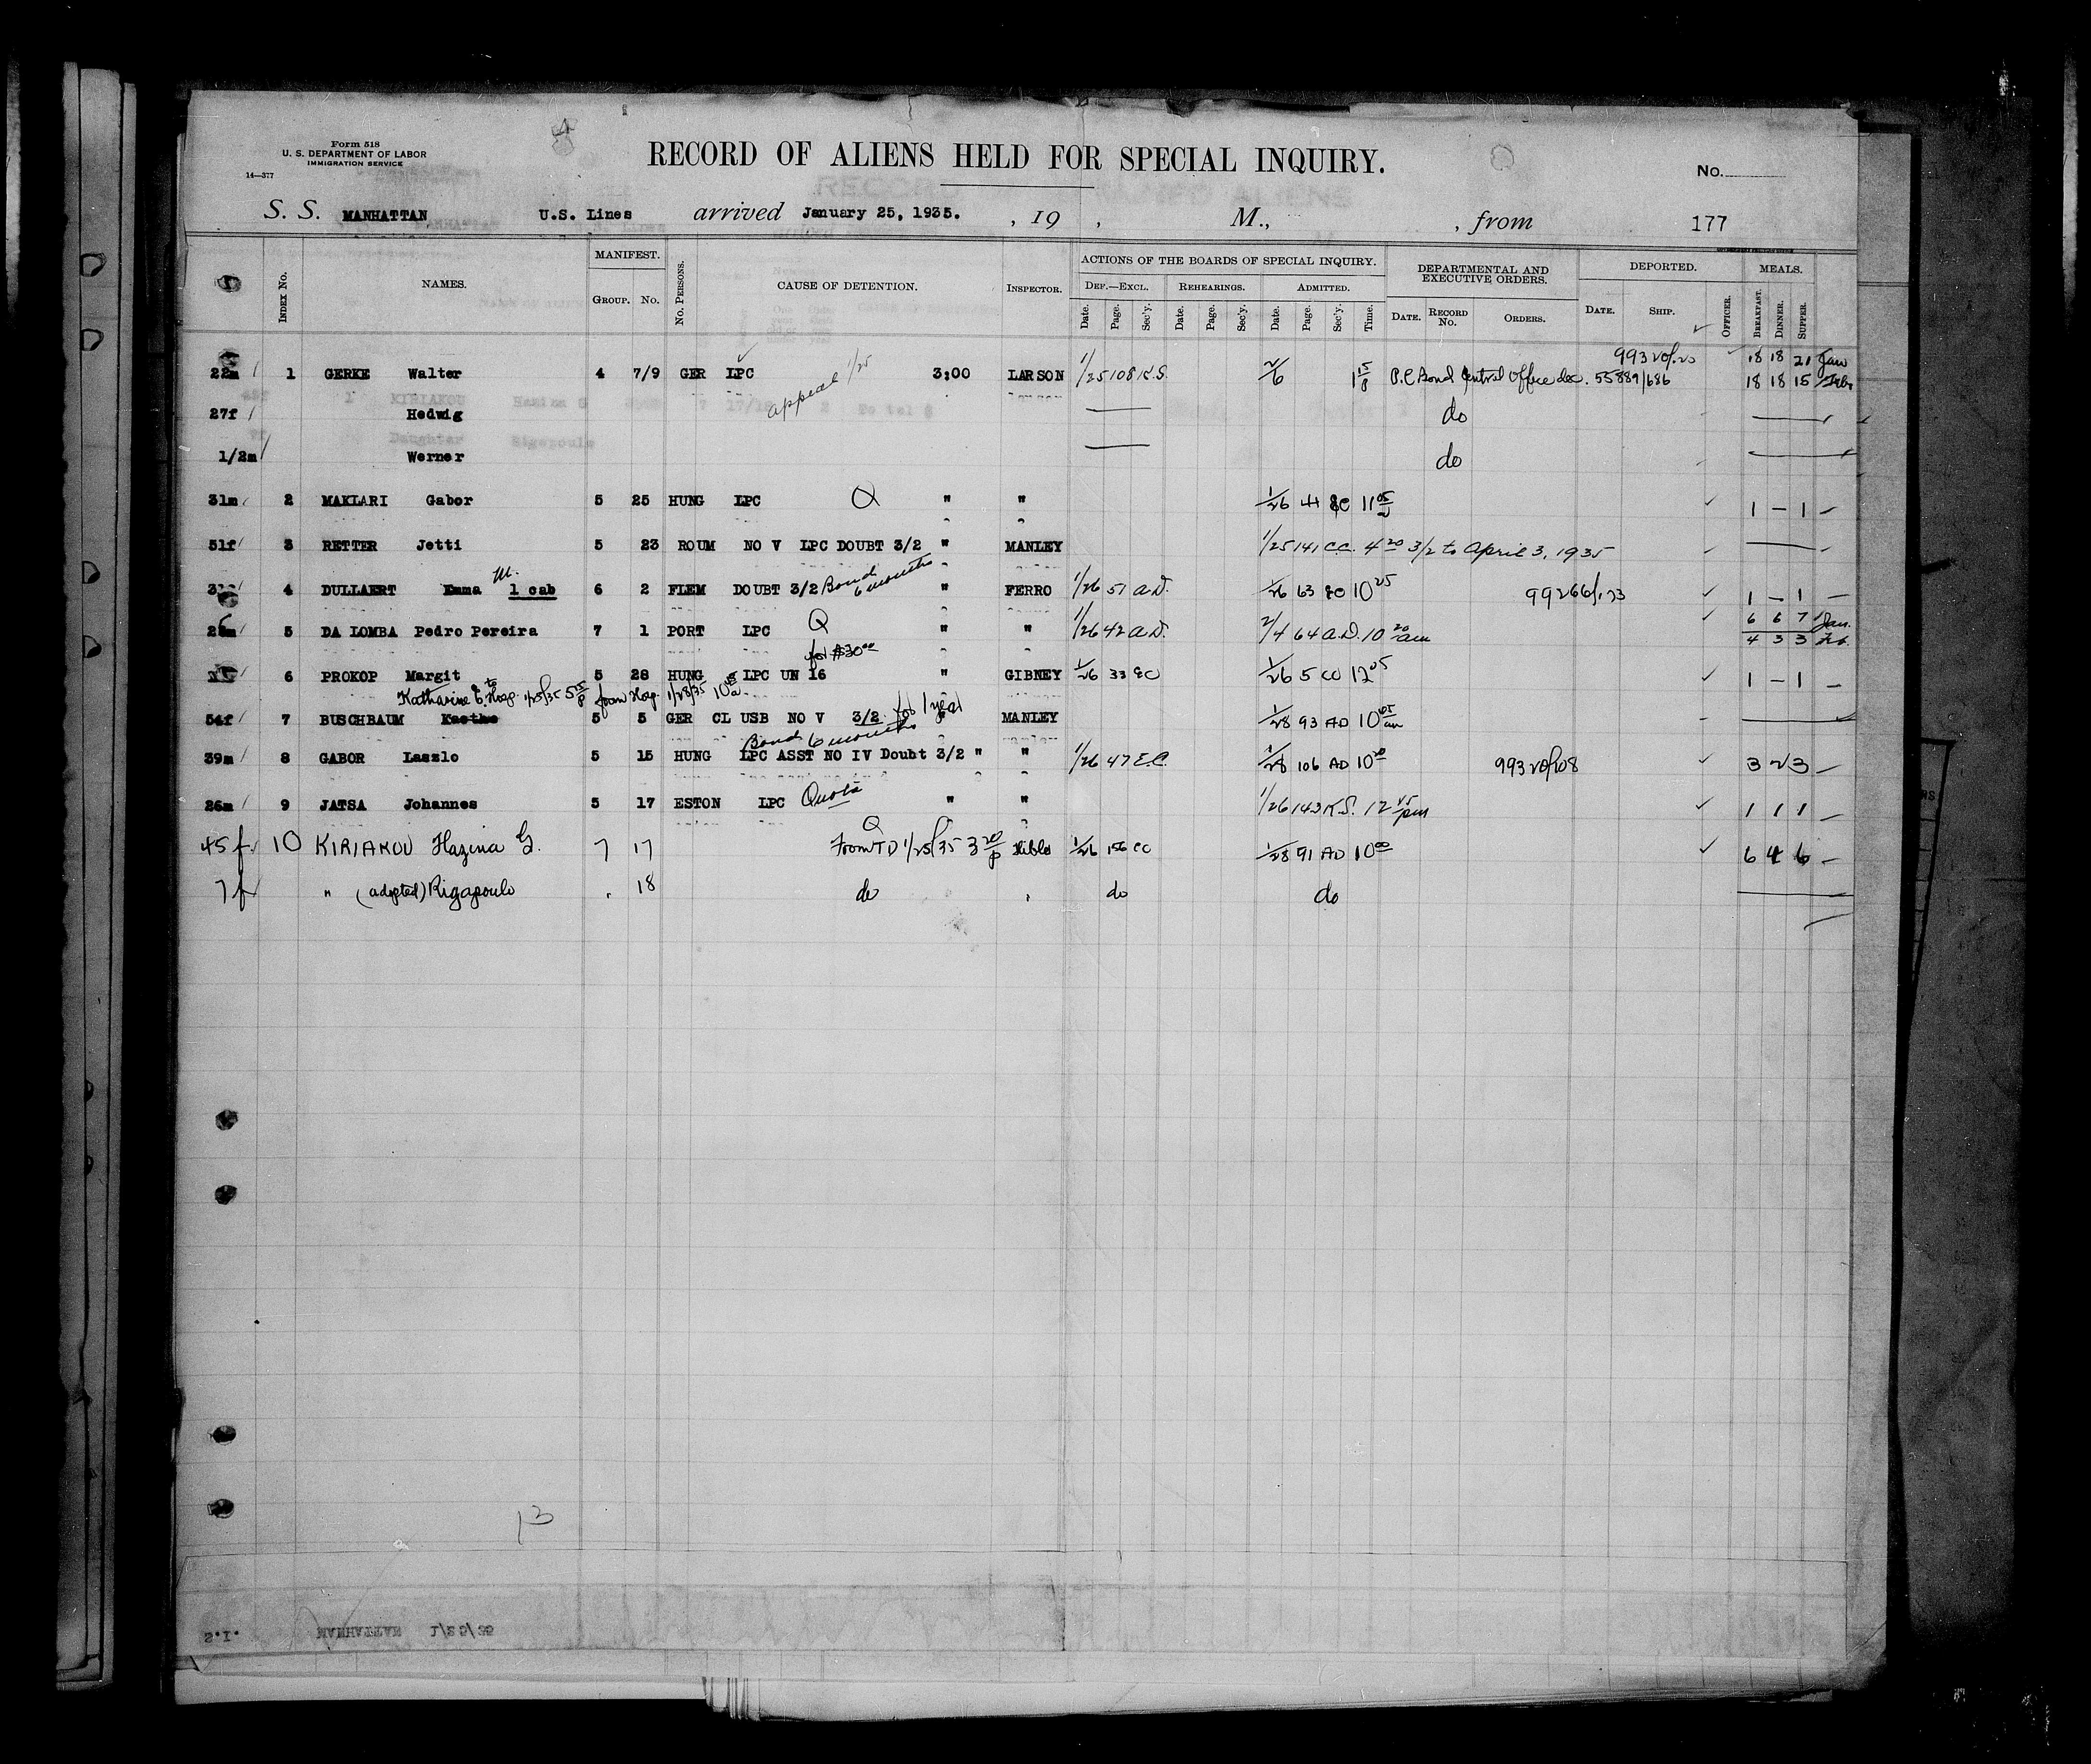 Form 518
U. S. DEPARTMENT OF LABOR
IMMIGRATION SERVICE
14—377
RECORD OF ALIENS HELD FOR SPECIAL INQUIRY.
No.
S. S. MANHATTAN U.S. Lines arrived January 25, 1935. , 19 , M., , from 177
INDEX No. NAMES. MANIFEST. GROUP. No. No. PERSONS. CAUSE OF DETENTION. INSPECTOR. ACTIONS OF THE BOARDS OF SPECIAL INQUIRY. DEPARTMENTAL AND EXECUTIVE ORDERS. DEPORTED. MEALS.
DEF.—EXCL. REHEARINGS. ADMITTED.
Date. Page. Sec'y. Date. Page. Sec'y. Date. Page. Sec'y. Time. DATE. RECORD No. ORDERS. DATE. SHIP. OFFICER. BREAKFAST. DINNER. SUPPER.
18 18 21 Jan
22m 1 GERKE Walter 4 7/9 GER LPC appeal 1/25 3:00 LARSON 1/25 108 K.S. 2/6 1 15/p P.C Bond Central Office dec. 55889/686 18 18 15 Feb
27f Hedwig do
1/2m Werner do
31m 2 MAKLARI Gabor 5 25 HUNG LPC Q " " 1/26 44 11 05 1 – 1 –
51f 3 RETTER Jetti 5 23 ROUM NO V LPC DOUBT 3/2 " MANLEY 1/25 141 C.C. 4 20 3/2 to April 3, 1935
M.
4 DULLAERT Emma 1 cab 6 2 FLEM DOUBT 3/2 Bond 6 months " FERRO 1/26 51 A.D. 1/26 63 10 25 99266/123 1 – 1 –
5 DA LOMBA Pedro Pereira 7 1 PORT LPC Q " " 1/26 42 A.D. 2/4 64 A.D. 10 20 am 6 6 7 Jan.
4 3 3 Feb.
for $30 00
6 PROKOP Margit 5 28 HUNG LPC UN 16 " GIBNEY 1/26 33 1/26 5 CO 12 05 1 – 1 –
Katharine E. to Hosp. 1/25/35 5 25/p from Hosp. 1/28/35 10
54f 7 BUSCHBAUM Kaethe 5 5 GER CL USB NO V 3/2 for 1 year MANLEY 1/28 93 AD 10 05 am
Bond 6 months
39m 8 GABOR Laszlo 5 15 HUNG LPC ASST NO IV Doubt 3/2 " " 1/26 47 E.C. 1/28 106 AD 10 20 99320/208 3 2 3 –
26m 9 JATSA Johannes 5 17 ESTON LPC Quota " " 1/26 143 K.S. 12 45 pm 1 1 1 –
Q
45 f 10 KIRIAKOU Hazina G. 7 17 From TD 1/25/35 3 20/p 1/26 156 CC 1/28 91 AD 10 00 6 4 6 –
7 f " (adopted) Rigapoulo 18 do do do
13
S.I. MANHATTAN 1/25/35